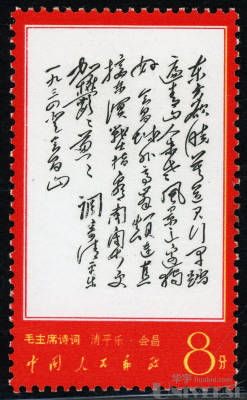 东方欲晓莫道君行早踏
遍青山人未老风景这边独
好会昌城外高峰颠连直
接东溟战士指看南粤更
加郁郁葱葱
调寄清平乐
一九三四会昌山
毛主席诗词 清平乐·会昌
中国人民邮政
8分